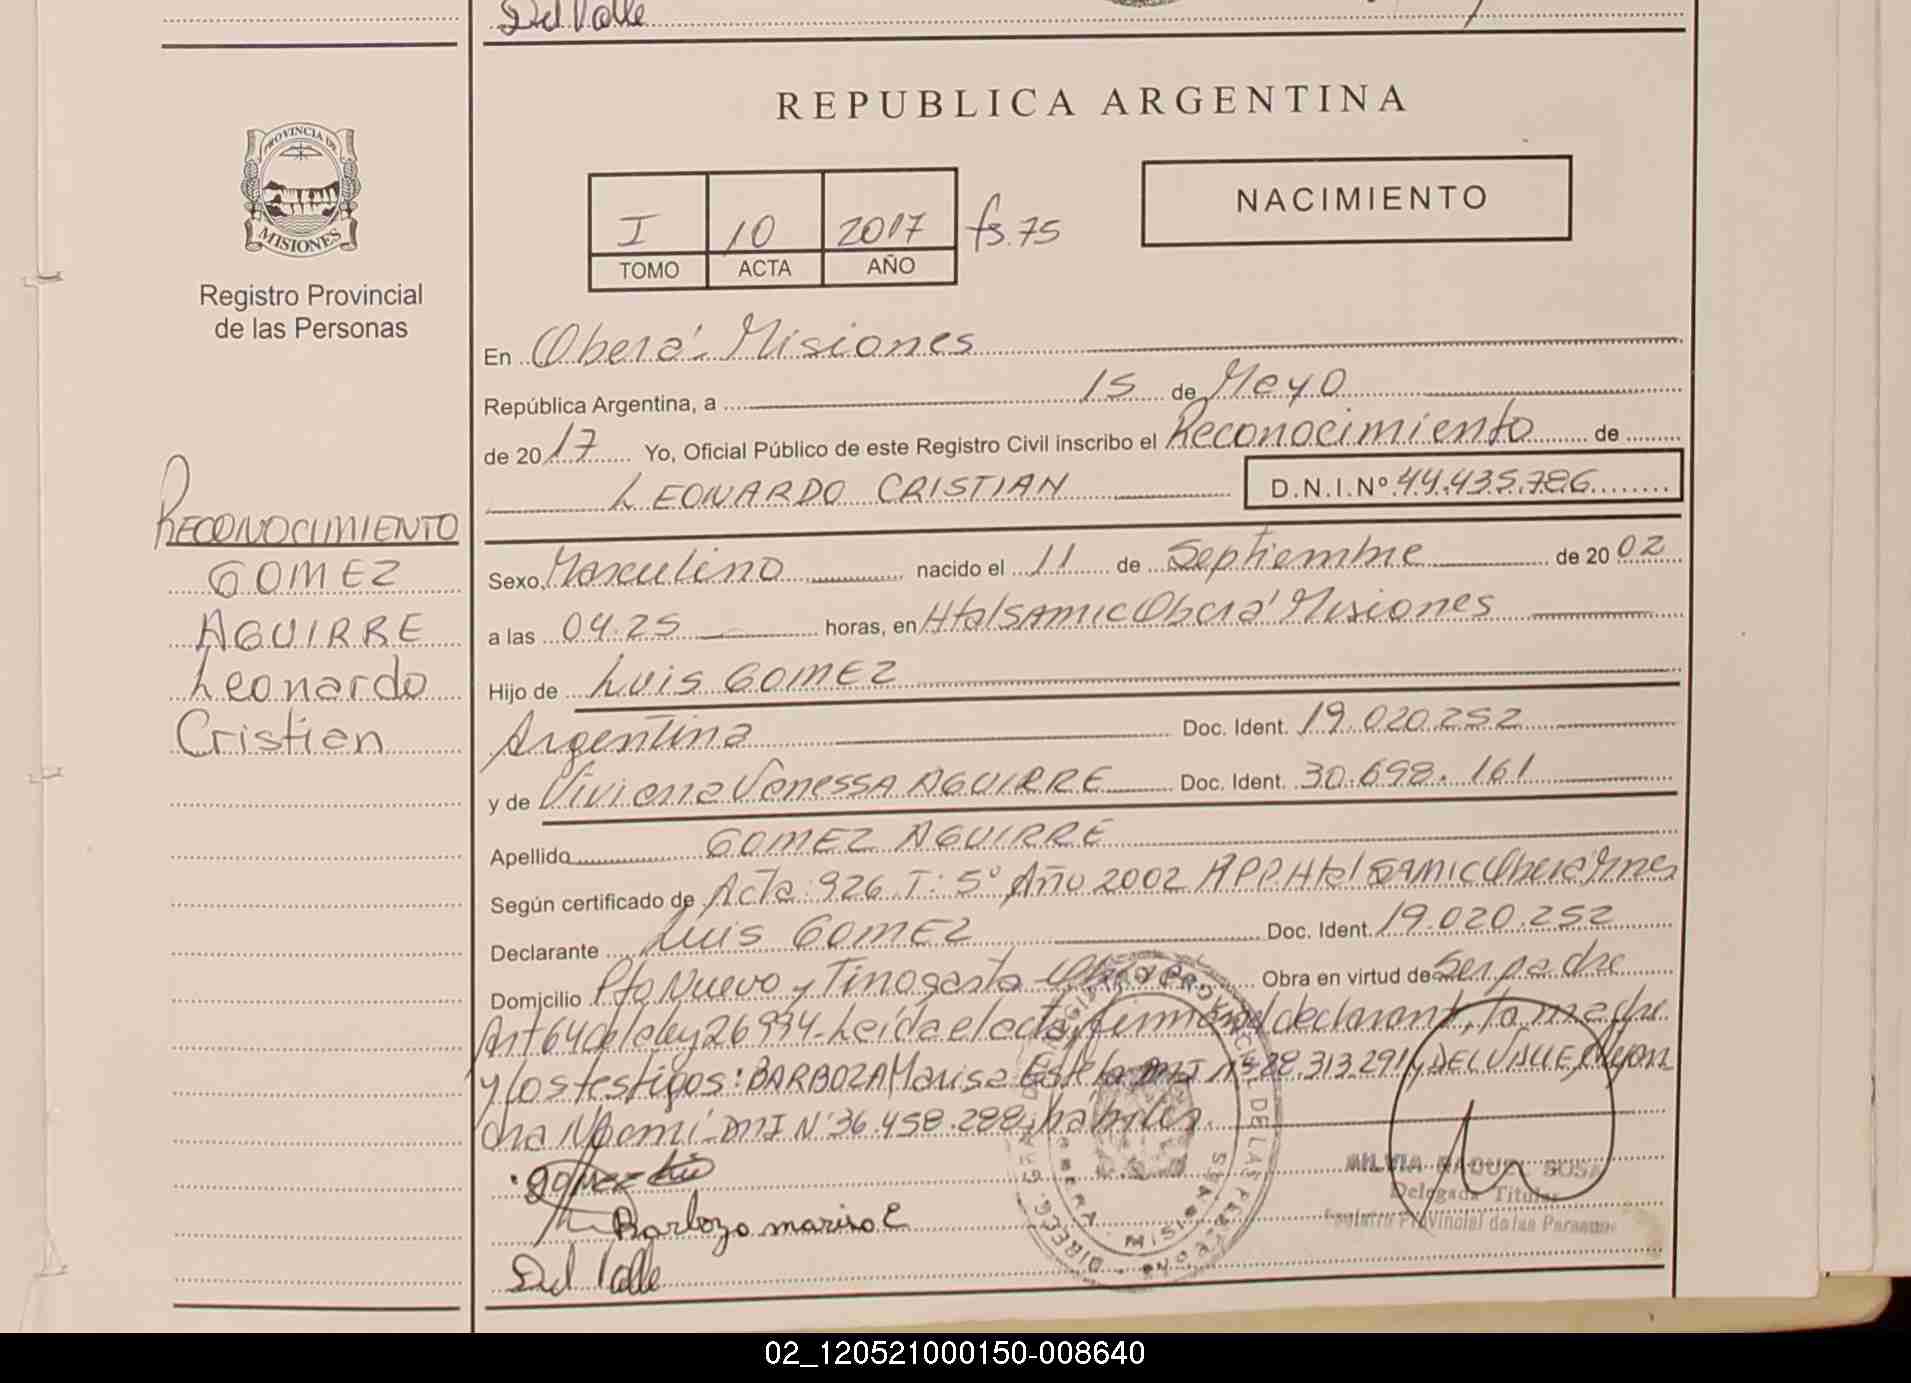 Del Valle
REPUBLICA ARGENTINA
PROVINCIA DE
MISIONES
Registro Provincial
de las Personas
I 10 2017 fs. 75
TOMO ACTA AÑO
NACIMIENTO
En Oberá - Misiones
República Argentina, a 15 de Mayo
de 2017 Yo, Oficial Público de este Registro Civil inscribo el Reconocimiento de
LEONARDO CRISTIAN D.N.I.Nº 44.435.786
RECONOCIMIENTO
GOMEZ
AGUIRRE
Leonardo
Cristian
Sexo Masculino nacido el 11 de Septiembre de 2002
a las 04.25 horas, en Htal SAMIC Oberá Misiones
Hijo de Luis GOMEZ
Argentina Doc. Ident. 19.020.252
y de Viviana Vanessa AGUIRRE Doc. Ident. 30.698.161
Apellido GOMEZ AGUIRRE
Según certificado de Acta: 926 T: 5º Año 2002 RPP Htal SAMIC Oberá Mnes
Declarante Luis GOMEZ Doc. Ident. 19.020.252
Domicilio Pto Nuevo y Tinogasta Obra en virtud de Ser padre
Art 64 de la ley 26994 - Leída el acta, firman el declarante, la madre
y los testigos: BARBOZA Marisa Estela DNI Nº 28.313.291 y DEL VALLE
Noemí - DNI Nº 36.458.288, hábiles.
Gomez Luis
Barboza marisa E
Del Valle
SILVIA RAQUEL SOSA
Delegada Titular
Registro Provincial de las Personas
02_120521000150-008640